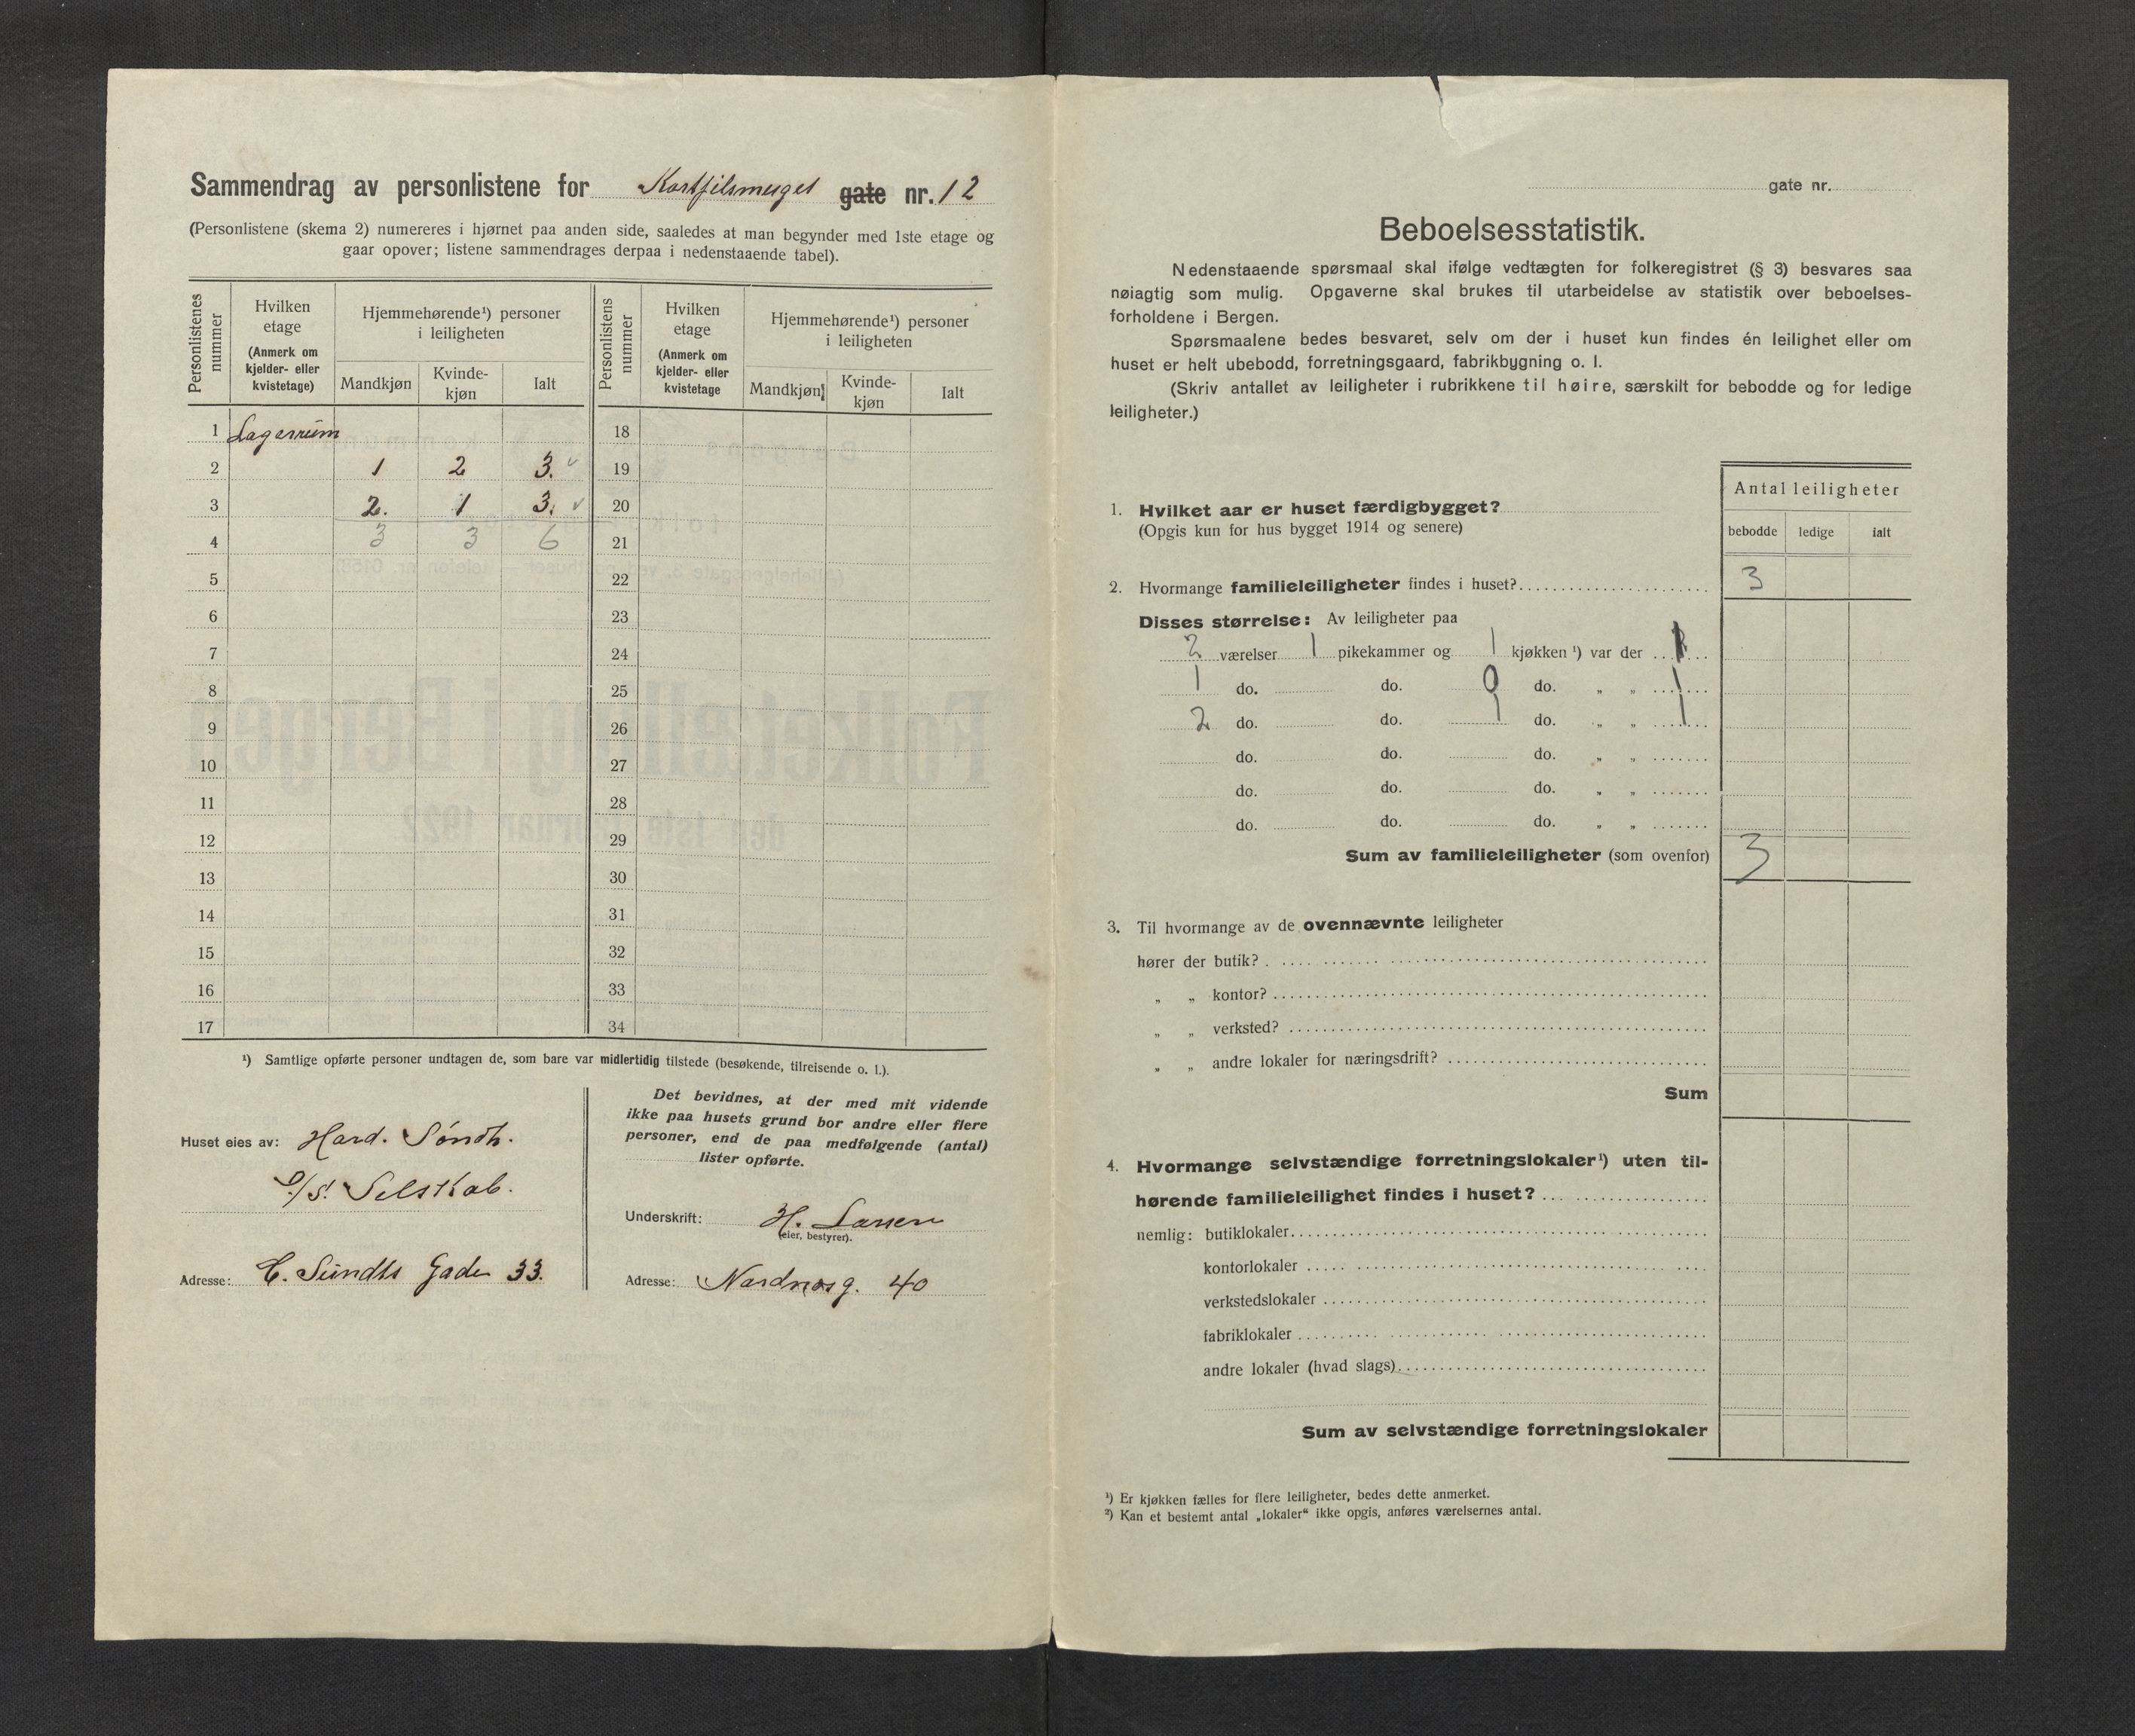 Sammendrag av personlistene for Kortfilsmuget gate nr. 12
(Personlistene (skema 2) numereres i hjørnet paa anden side, saaledes at man begynder med 1ste etage og
gaar opover; listene sammendrages derpaa i nedenstaaende tabel).
Personlistenes nummer
Hvilken etage (Anmerk om kjelder- eller kvistetage)
Hjemmehørende¹) personer i leiligheten
Mandkjøn
Kvindekjøn
Ialt
Personlistens nummer
Hvilken etage (Anmerk om kjelder- eller kvistetage
Hjemmehørende¹) personer i leiligheten
Mandkjøn
Kvinde-kjøn
Ialt
1 Lagerrum 18
2 1 2 3. 19
3 2. 1 3. 20
4 3 3 6 21
5 22
6 23
7 24
8 25
9 26
10 27
11 28
12 29
13 30
14 31
15 32
16 33
17 34
¹) Samtlige opførte personer undtagen de, som bare var midlertidig tilstede (besøkende, tilreisende o. l.).
Huset eies av: Hard. Søndh.
D/S. Selskab.
Adresse: C. Sundts Gade 33.
Det bevidnes, at der med mit vidende
ikke paa husets grund bor andre eller flere
personer, end de paa medfølgende (antal)
lister opførte.
Underskrift: H. Larsen
(eier, bestyrer).
Adresse: Nordnæsg. 40
gate nr.
Beboelsesstatistik.
Nedenstaaende spørsmaal skal ifølge vedtægten for folkeregistret (§ 3) besvares saa
nøiagtig som mulig. Opgaverne skal brukes til utarbeidelse av statistik over beboelses-
forholdene i Bergen.
Spørsmaalene bedes besvaret, selv om der i huset kun findes én leilighet eller om
huset er helt ubebodd, forretningsgaard, fabrikbygning o. l.
(Skriv antallet av leiligheter i rubrikkene til høire, særskilt for bebodde og for ledige
leiligheter.)
Antal leiligheter
bebodde ledige ialt
1. Hvilket aar er huset færdigbygget?
(Opgis kun for hus bygget 1914 og senere)
2. Hvormange familieleiligheter findes i huset? 3
Disses størrelse: Av leiligheter paa
2 værelser 1 pikekammer og 1 kjøkken ¹) var der 1
1 do. do. 0 do. „ „ 1
2 do. do. 1 do. „ „ 1
do. do. do. „ „
do. do. do. „ „
do. do. do. „ „
Sum av familieleiligheter (som ovenfor) 3
3. Til hvormange av de ovennævnte leiligheter
hører der butik?
„ „ kontor?
„ „ verksted?
„ „ andre lokaler for næringsdrift?
Sum
4. Hvormange selvstændige forretningslokaler¹) uten til-
hørende familieleilighet findes i huset?
nemlig: butiklokaler
kontorlokaler
verkstedslokaler
fabriklokaler
andre lokaler (hvad slags)
Sum av selvstændige forretningslokaler
¹) Er kjøkken fælles for flere leiligheter, bedes dette anmerket.
²) Kan et bestemt antal „lokaler“ ikke opgis, anføres værelsernes antal.